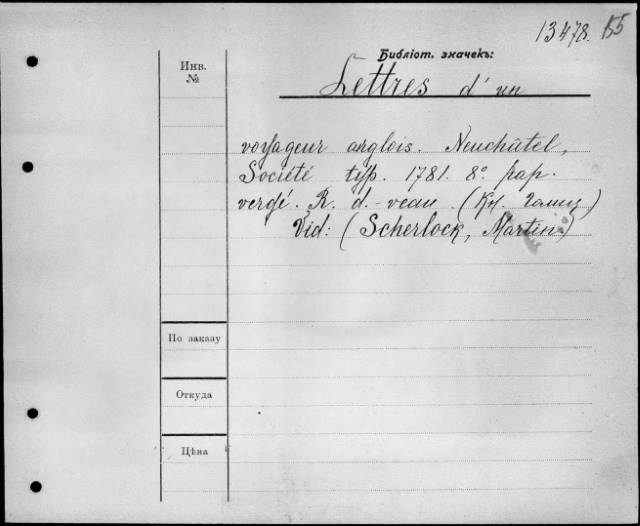 13478. 155
Библіот. значекъ:
Инв.
№
Lettres d'un
voyageur anglois. Neuchâtel,
Société typ. 1781. 8º. pap.
vergé. R. d.-veau. (Кн. Голиц.)
Vid: (Scherlock, Martin.)
По заказу
Откуда
Цѣна